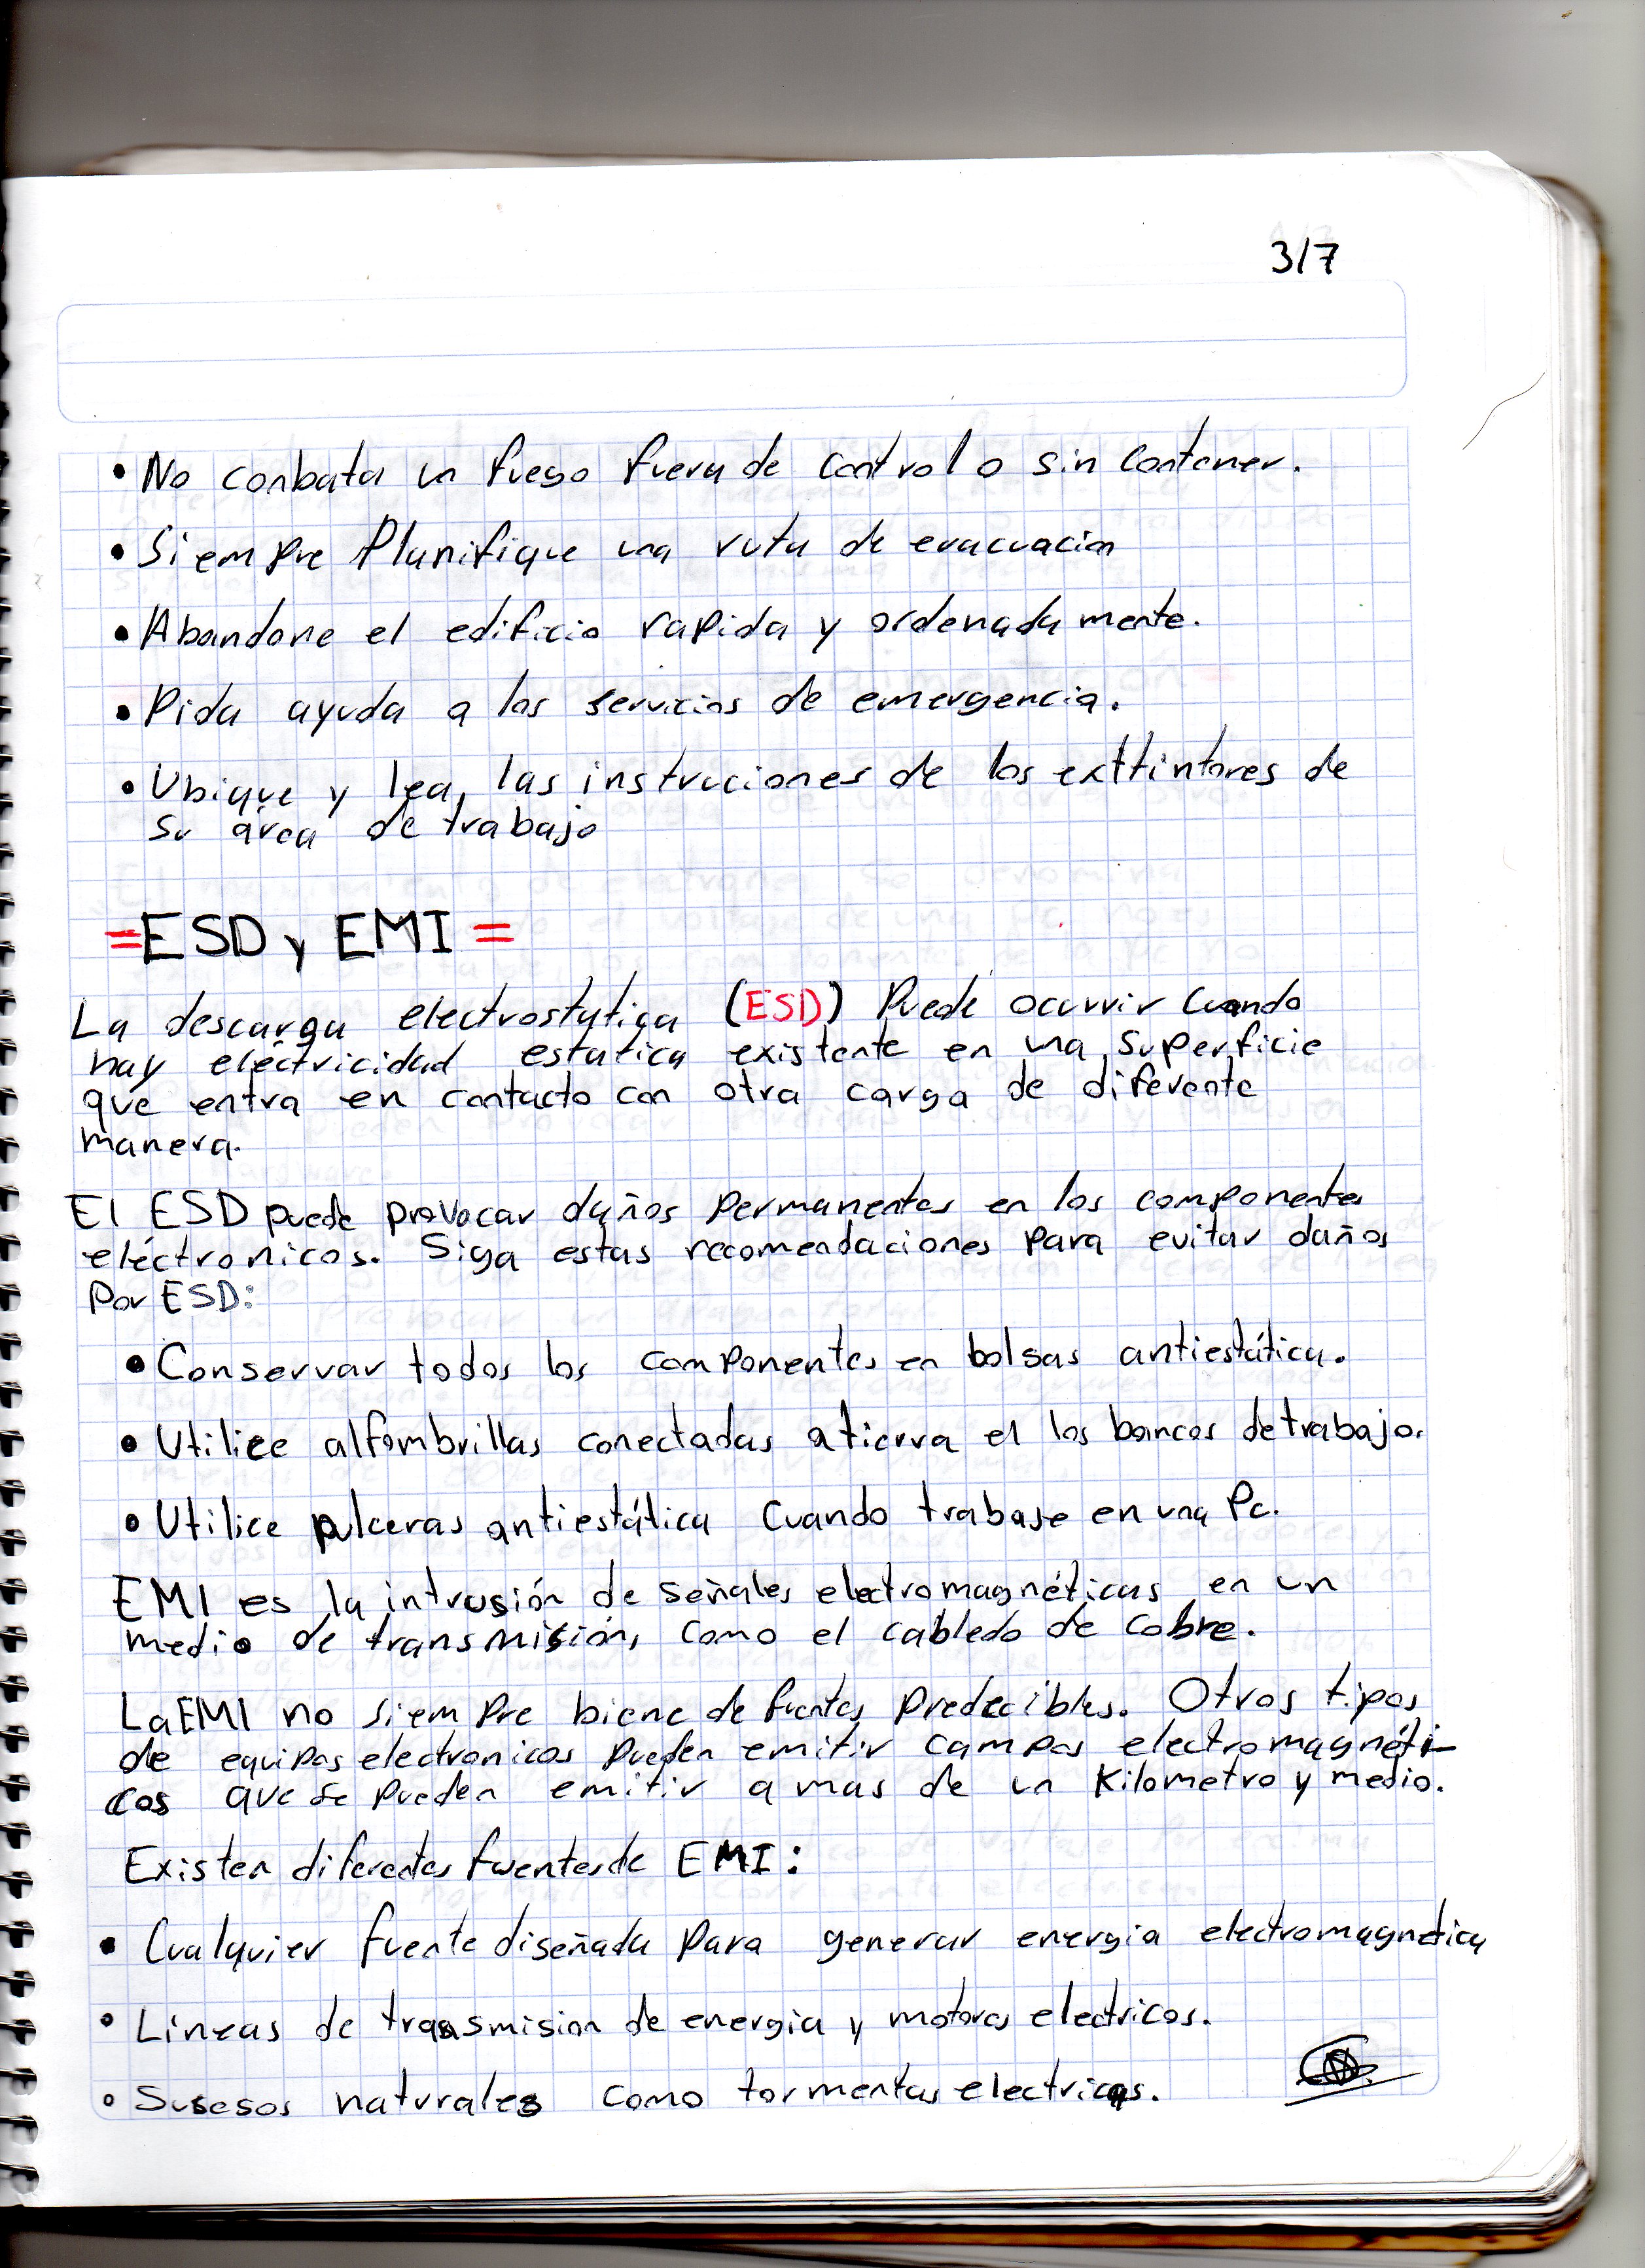 3/7
• No conbata un fuego fuera de control o sin contener.
• Siempre Planifique una ruta de evacuacion
• Abandone el edificio rapida y ordenada mente.
• Pida ayuda a los servicios de emergencia.
• Ubique y lea, las instruciones de los exttintores de
su área de trabajo
=ESD y EMI=
La descarga electrostatica (ESD) Puede ocurrir Cuando
hay eléctricidad estatica existente en una superficie
que entra en contacto con otra carga de diferente
manera.
El ESD puede provocar daños permanentes en los componentes
eléctronicos. Siga estas recomendaciones para evitar daños
Por ESD:
• Conservar todos los componentes en bolsas antiestática.
• Utilice alfombrillas conectadas a tierra el los bancos de trabajo.
• Utilice pulceras antiestática Cuando trabaje en una Pc.
EMI es la intrusión de señales electromagnéticas en un
medio de transmisión, como el cabledo de cobre.
La EMI no siempre biene de fuentes predecibles. Otros tipos
de equipos electronicos pueden emitir campos electromagnéti-
cos que se pueden emitir a mas de un Kilometro y medio.
Existen diferentes fuentes de EMI:
• Cualquier fuente diseñada para generar energia electromagnetica
• Lineas de trasmision de energia y motores electricos.
• Susesos naturales como tormentas electricas.